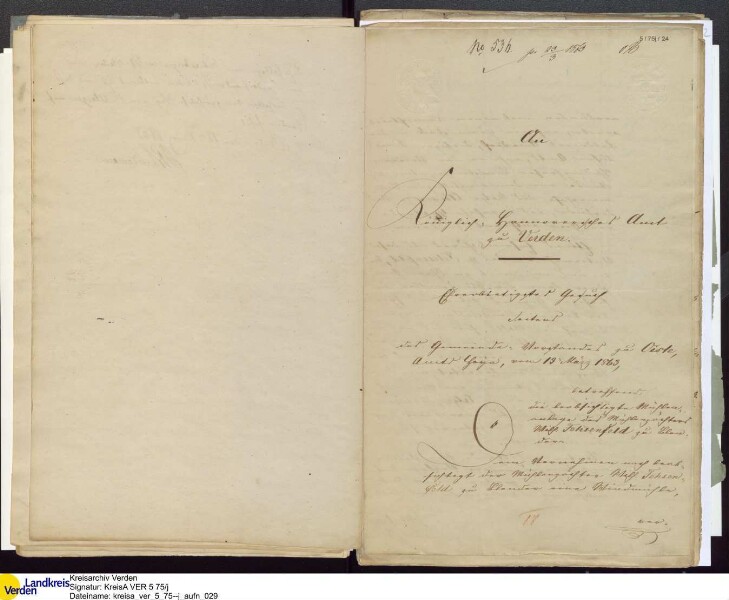 No 336.
1863
5/75j / 24
An
Königlich Hannoversches Amt
zu Verden.
Ehrerbietigstes Gesuch
Seitens
des Gemeinde-Vorstandes zu Oiste,
Amts Hoya, vom 13 März 1863,
betreffend
die beabsichtigte Mühlen-
anlage des Mühlenpächters
zu Blen-
der.
Dem Vernehmen nach beab-
sichtigt der Mühlenpächter
zu Blender eine Windmühle,
Landkreis
Verden
Kreisarchiv Verden
Signatur: KreisA VER 5 75/j
Dateiname: kreisa_ver_5_75--j_aufn_029